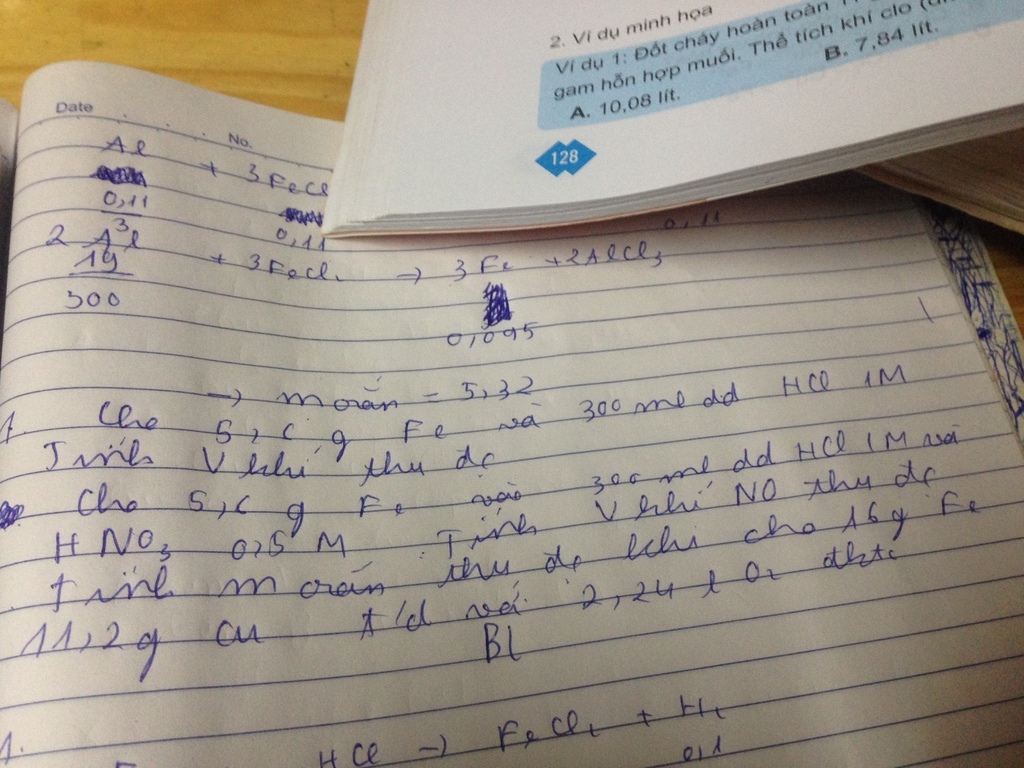 2. Ví dụ minh họa
Ví dụ 1: Đốt cháy hoàn toàn
gam hỗn hợp muối. Thể tích khí clo
A. 10,08 lít.
B. 7,84 lít.
128
Date
No.
Al + 3FeCl
0,11 0,11 0,11
3
2 Al + 3FeCl₂ → 3Fe + 2AlCl₃
19
300
0,095
→ m rắn = 5,32
1 Cho 5,6 g Fe và 300 ml dd HCl 1M
Tính V khí thu đc
Cho 5,6 g Fe vào 300 ml dd HCl 1M và
HNO₃ 0,5 M. Tính V khí NO thu đc
Tính m rắn thu đc khi cho 16 g Fe
11,2g Cu t/d với 2,24 l O₂ đktc
BL
1.
HCl → FeCl₂ + H₂
0,1